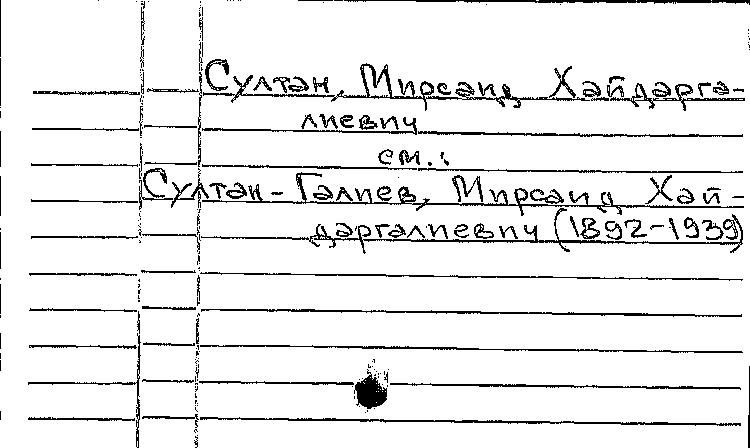 Султан, Мирсаид Хайдарга-
лиевич
см.:
Султан-Галиев, Мирсаид Хай-
даргалиевич (1892-1939)